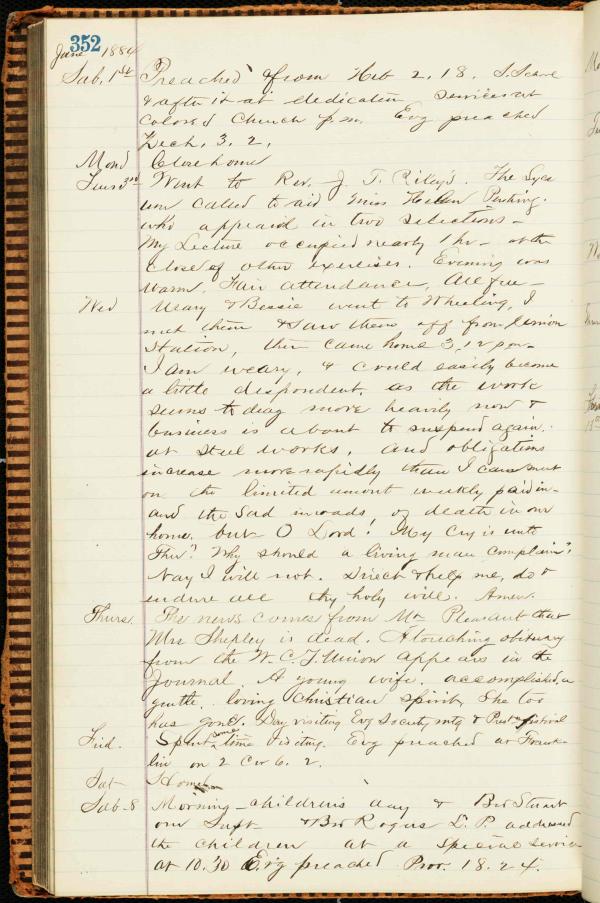 352
June 1884
Sab. 1st Preached from Heb 2.18. S. Scave
& after it at dedication services at
Colored Church p.m. Evg preached
Zech. 3. 2.
Mond Close home
Tues 3rd Went to Rev. J. T. Riley's. The Lyce
um called to aid Miss Helen
who appeared in two selections –
My Lecture occupied nearly 1 hr – at the
close of other exercises. Evening was
warm, Fair attendance, All free –
Wed Mary & Bessie went to Wheeling, I
met them & saw them off from Union
Station, then came home 3,12 pm –
I am weary, & could easily become
a little despondent, as the work
seems to drag more heavily now &
business is about to suspend again.
at steel works, and obligations
increase more rapidly than I can meet
on the limited amount weekly paid in –
and the sad inroads of death in our
home, but O Lord! My cry is unto
Thee! Why should a living man complain?
Nay I will not. Direct & help me, do &
endure all thy holy will. Amen.
Thurs. The news comes from Mt Pleasant that
Mrs Shepley is dead. A touching obituary
from the W. C. T. Union appears in the
Journal. A young wife, accomplished, a
gentle, loving Christian spirit, She too
has gone. Day visiting Evg Society mtg & Festival
Frid. Spent some time visiting. Evg preached at Frank-
lin on 2 Cor 6. 2.
Sat Home
Sab – 8 Morning – children's day & Bro Stuart
our Supt – & Bro Rogers L. P. addressed
the children at a special service
at 10.30 Evg preached Prov. 18. 24.